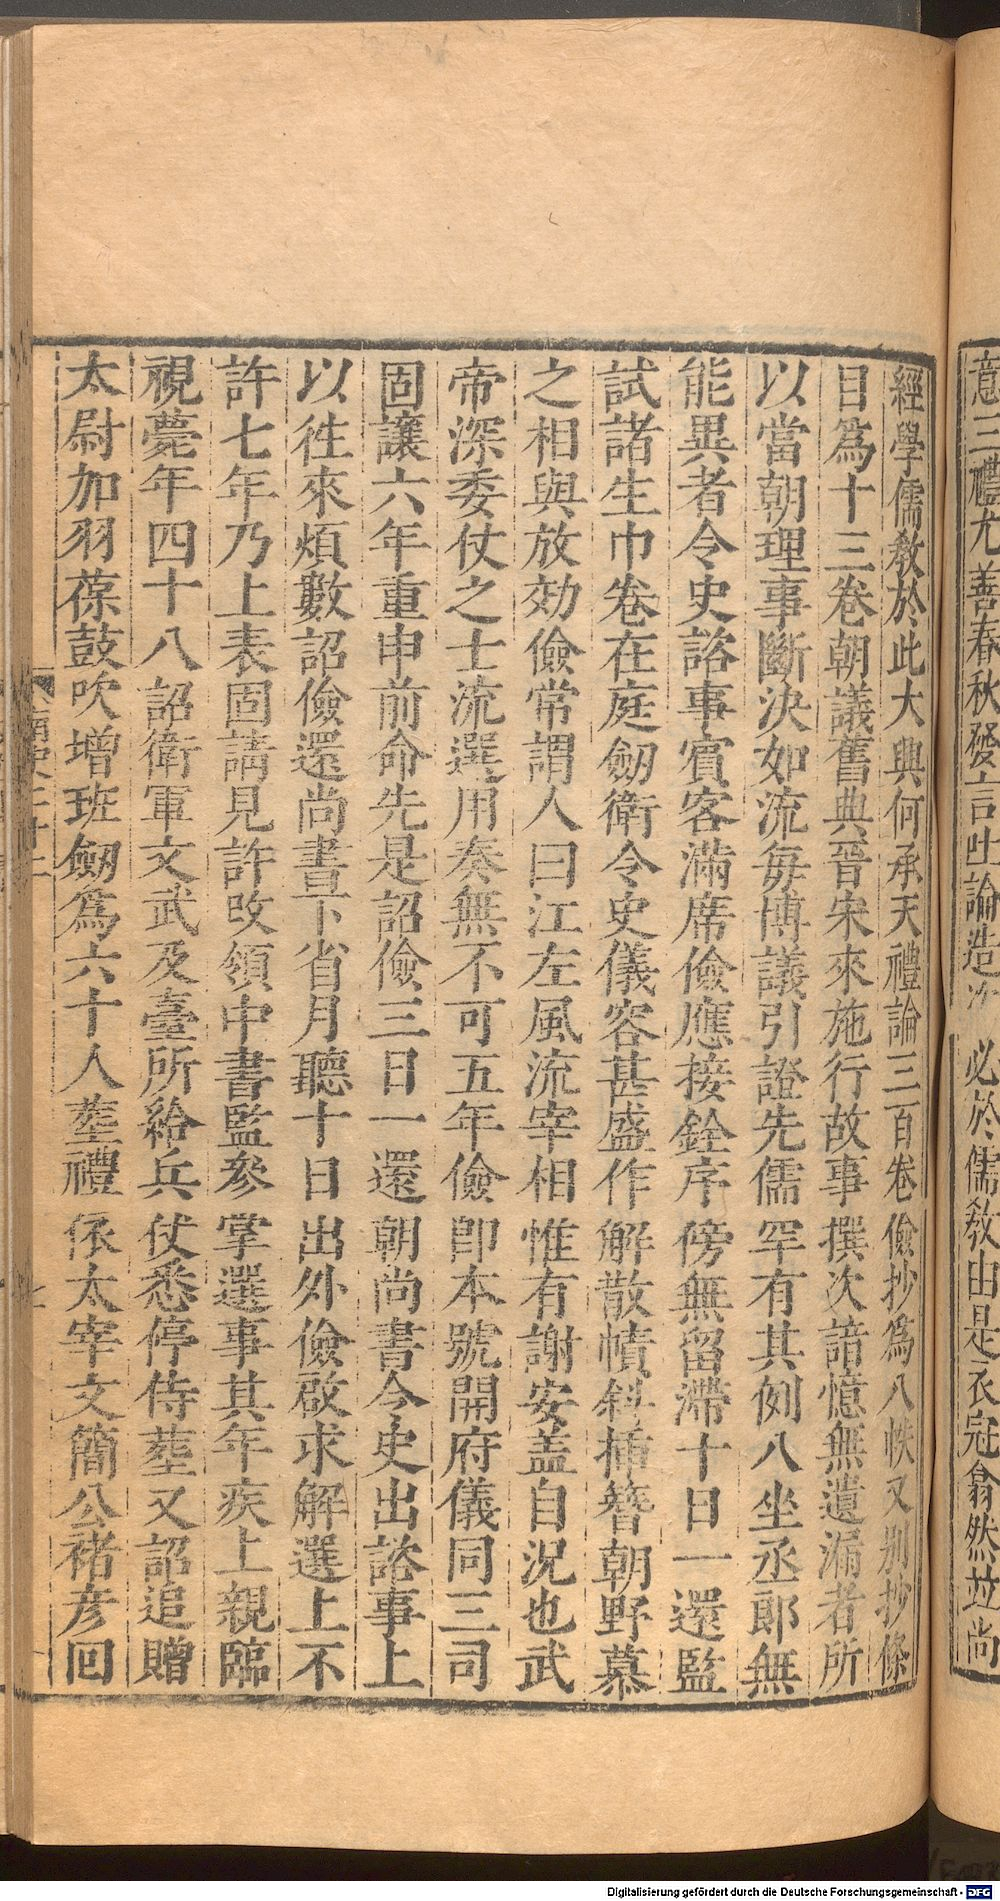 意三禮尤善春秋發言吐論造次必於儒敎由是衣冠翕然並尚
經學儒敎於此大興何承天禮論三百卷儉抄爲八帙又别抄條
目爲十三卷朝議舊典晉宋來施行故事撰次諳憶無遺漏者所
以當朝理事斷決如流每博議引證先儒罕有其例八坐丞郎無
能異者令史諮事賓客滿席儉應接銓序傍無留滯十日一還監
試諸生巾卷在庭劒衛令史儀容甚盛作解散幘斜插簪朝野慕
之相與放効儉常謂人曰江左風流宰相惟有謝安盖自况也武
帝深委仗之士流選用奏無不可五年儉卽本號開府儀同三司
固讓六年重申前命先是詔儉三日一還朝尚書令史出諮事上
以徃來煩數詔儉還尚書下省月聽十日出外儉啟求解選上不
許七年乃上表固請見許攺領中書監參掌選事其年疾上親臨
視薨年四十八詔衛軍文武及臺所給兵仗悉停侍葬又詔追贈
太尉加羽葆鼓吹增班劒爲六十人葬禮依太宰文簡公褚彥回
南史二十二
Digitalisierung gefördert durch die Deutsche Forschungsgemeinschaft - DFG